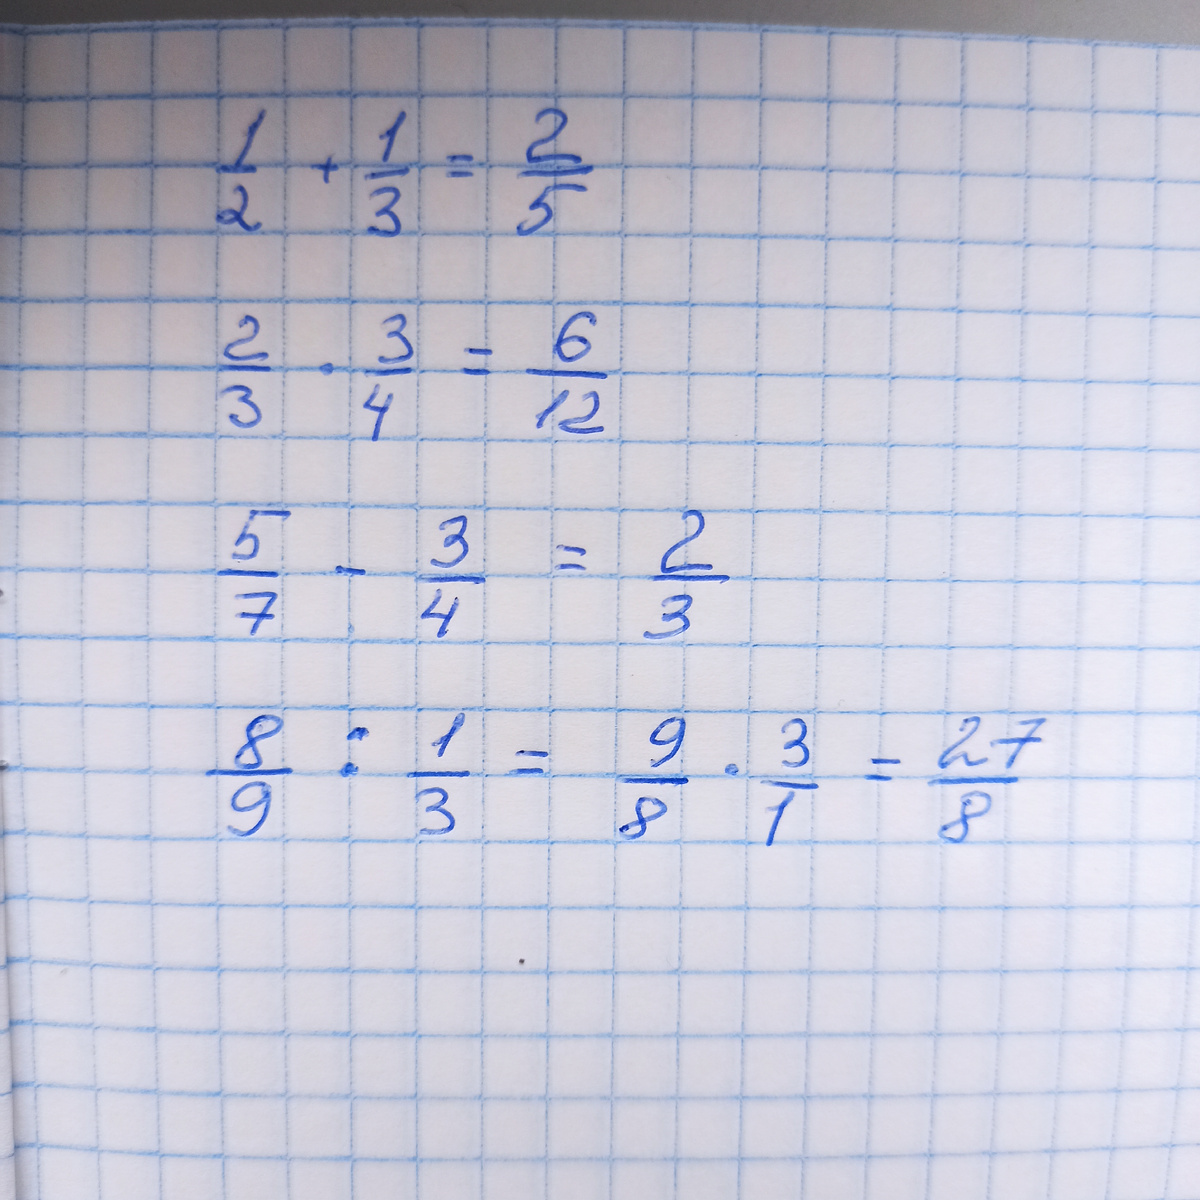 1/2 + 1/3 = 2/5
2/3 · 3/4 = 6/12
5/7 - 3/4 = 2/3
8/9 : 1/3 = 9/8 · 3/1 = 27/8